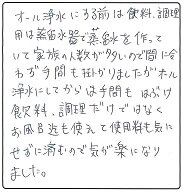 オール浄水にする前は飲料、調理
用は蒸留水器で蒸留水を作って
いて家族の人数が多いので間に合
わず手間も掛かりましたがオール
浄水にしてからは手間もはぶけ
飲料、調理だけではなく
お風呂迄も使えて使用料も気に
せずに済むので気が楽になり
ました。